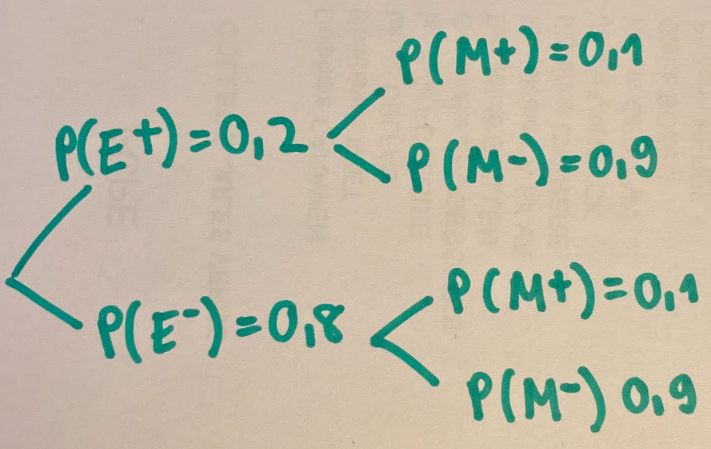 P(M+)=0,1
P(E+)=0,2
P(M-)=0,9
P(M+)=0,1
P(E-)=0,8
P(M-) 0,9